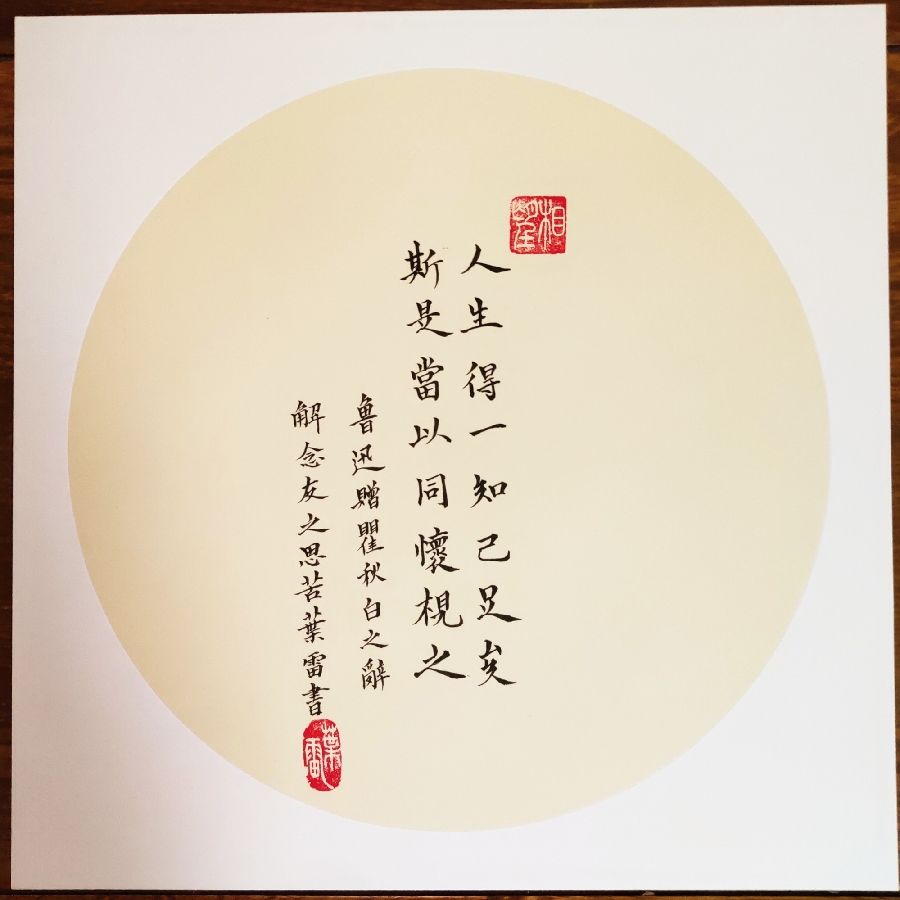 相望
人生得一知己足矣
斯是當以同懷視之
魯迅贈瞿秋白之辭
解念友之思苦葉雷書
葉雷